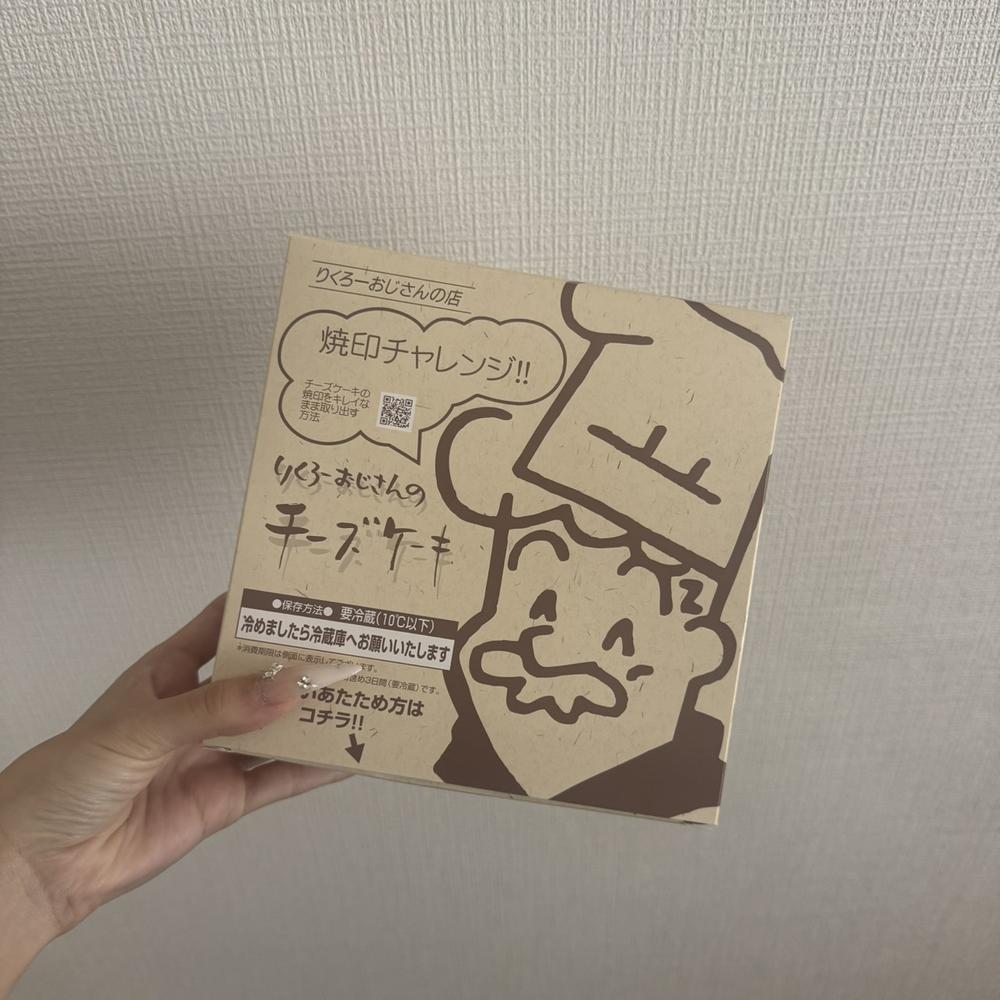 りくろーおじさんの店
焼印チャレンジ!!
チーズケーキの
焼印をキレイな
まま取り出す
方法
りくろーおじさんの
チーズケーキ
●保存方法● 要冷蔵(10℃以下)
冷めましたら冷蔵庫へお願いいたします
*消費期限は側面に表示してございます。
含め3日間(要冷蔵)です。
いあたため方は
コチラ!!